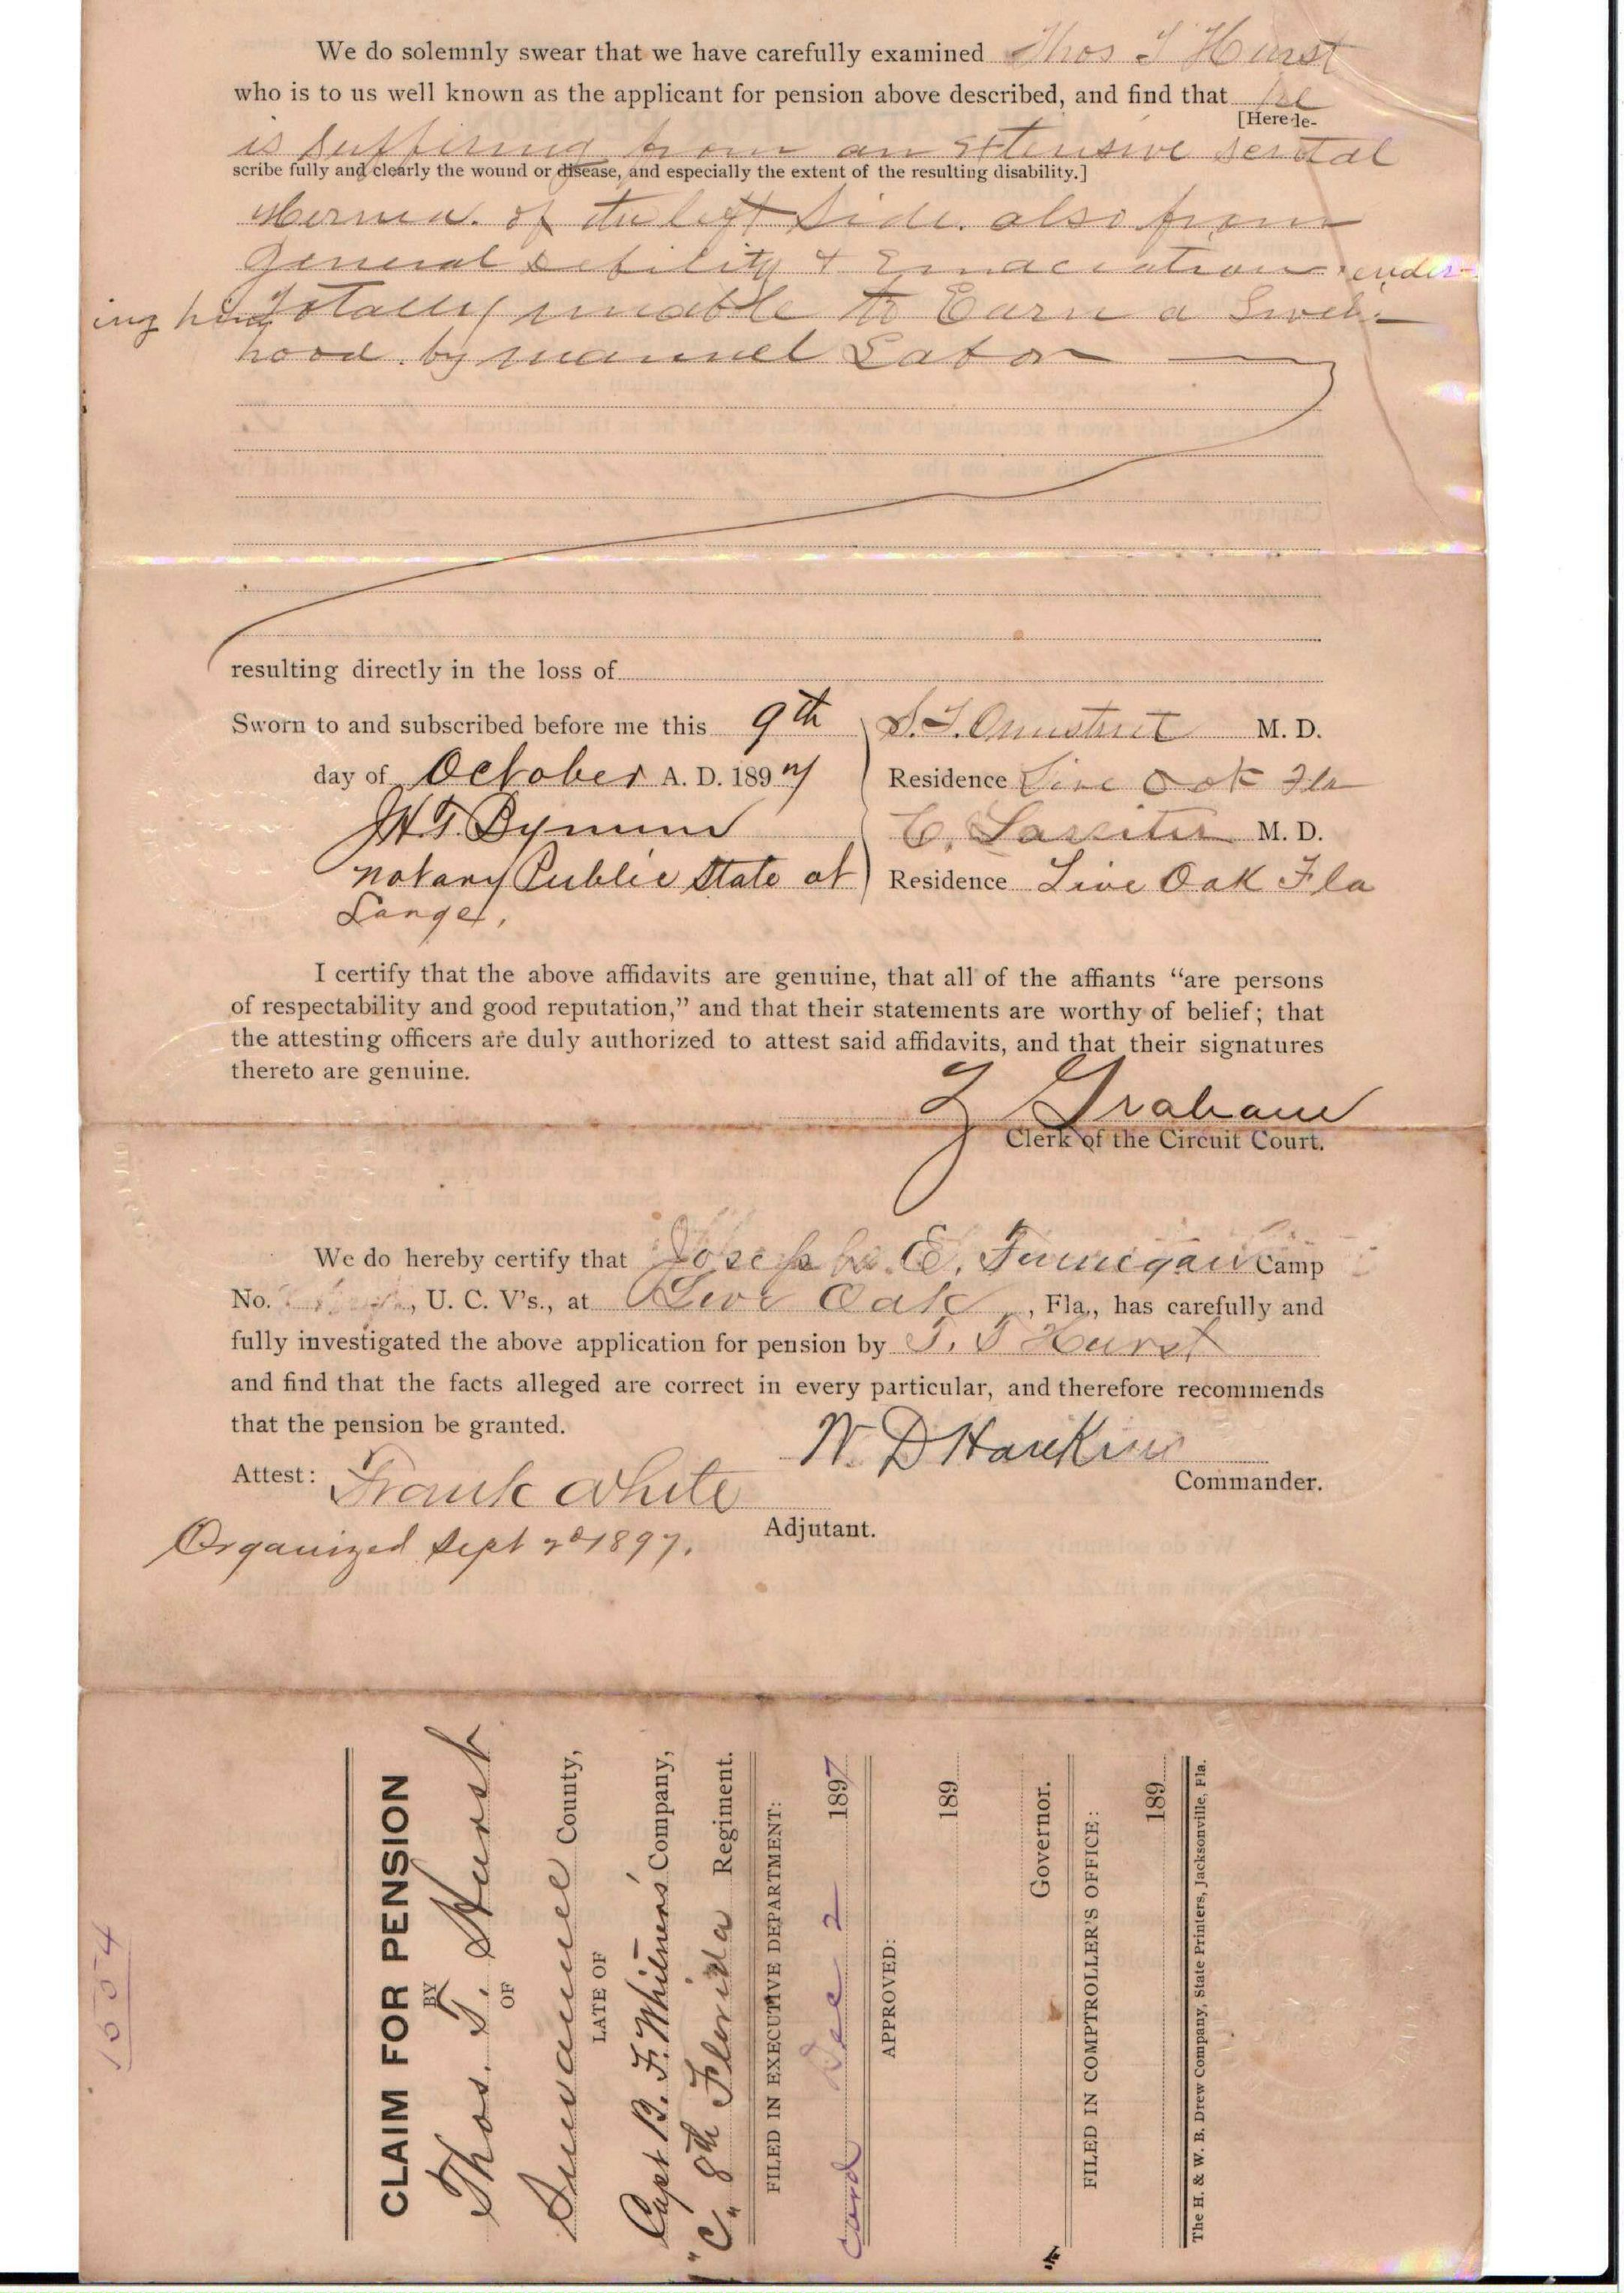 We do solemnly swear that we have carefully examined Thos T Hurst
who is to us well known as the applicant for pension above described, and find that he
[Here de-
is suffering from an extensive scrotal
scribe fully and clearly the wound or disease, and especially the extent of the resulting disability.]
Hernia. of the left side. also from
General Debility & Emaciation render-
ing him totally unable to Earn a Liveli-
hood by manuel Labor
resulting directly in the loss of
Sworn to and subscribed before me this 9th
day of October A. D. 1897
J.H.T. Bynum
Notary Public State at
Large,
S. T. M. D.
Residence Live Oak Fla
C. Lassiter M. D.
Residence Live Oak Fla
I certify that the above affidavits are genuine, that all of the affiants "are persons
of respectability and good reputation," and that their statements are worthy of belief; that
the attesting officers are duly authorized to attest said affidavits, and that their signatures
thereto are genuine.
Graham
Clerk of the Circuit Court.
We do hereby certify that Joseph E. Finnegan Camp
No. , U. C. V's., at Live Oak, Fla., has carefully and
fully investigated the above application for pension by T. T Hurst
and find that the facts alleged are correct in every particular, and therefore recommends
that the pension be granted.
W. D Hankins
Commander.
Attest: Frank White
Adjutant.
Organized Sept 2d 1897.
CLAIM FOR PENSION
BY
Thos. T. Hurst
OF
Suwannee County,
LATE OF
Capt B. F. Whitner's Company,
"C" 8th Florida Regiment.
FILED IN EXECUTIVE DEPARTMENT:
Card Dec 2 1897
APPROVED:
189
Governor.
FILED IN COMPTROLLER'S OFFICE:
189
The H. & W. B. Drew Company, State Printers, Jacksonville, Fla.